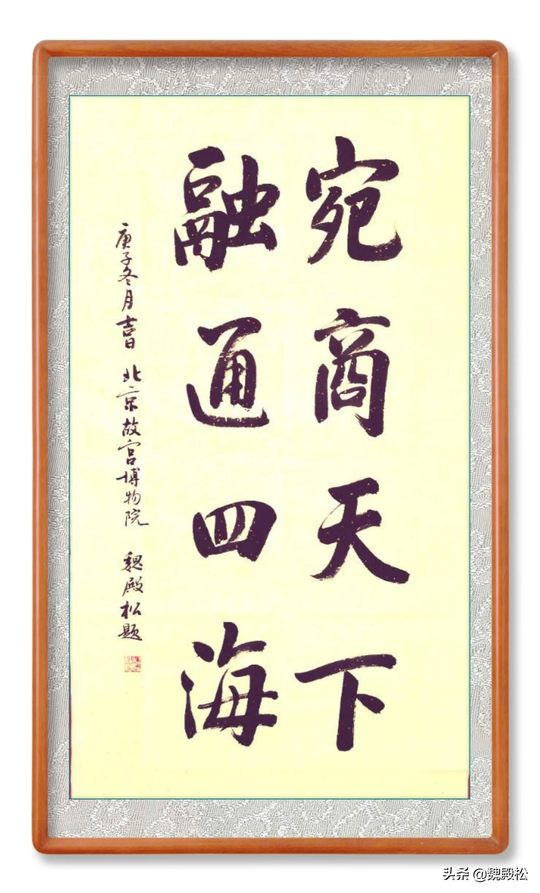 宛商天下
融通四海
庚子冬月吉日 北京故宫博物院 魏殿松题
头条 @魏殿松